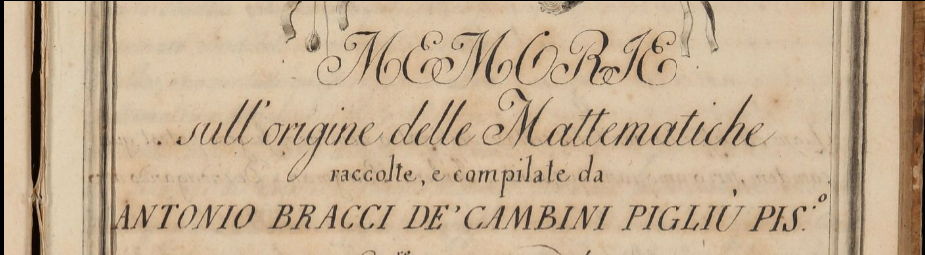 MEMORIE
sull'origine delle Mattematiche
raccolte, e compilate da
ANTONIO BRACCI DE' CAMBINI PIGLIÙ PIS.º